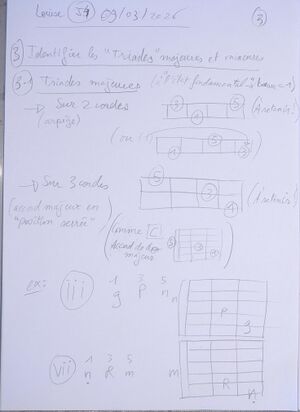 Louise J4 09/03/2026 ③
③ Identifier les "Triades" majeures et mineures
③-1 Triades majeures (à l'état fondamental → basse = 1)
→ Sur 2 cordes
(arpège)
③ ⑤
①
(à retenir)
(ou
⑤
① ③
→ Sur 3 cordes
⑤
③
①
(à retenir)
(accord majeur en
"position serrée")
(comme C
Accord de do
majeur
ex:
iii
1 3 5
g P n
n
P
g
vii
1 3 5
ṇ R m
m
R
ṇ